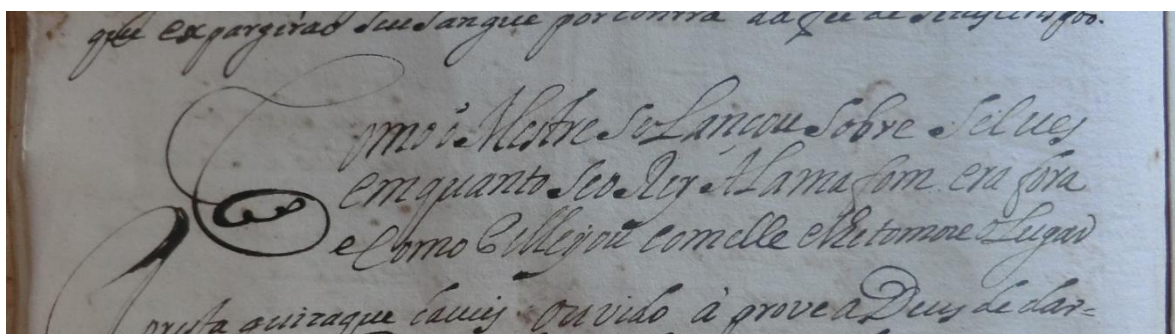 que expargirao seu sangue por contra da fee de
Como o Mestre se Lançou sobre Silues
emquanto seo Rey Alamafom era fora
e Como Pellejou comelle e lhe tomou o Lugar
aveis ouvido à prove a Deus de dar=